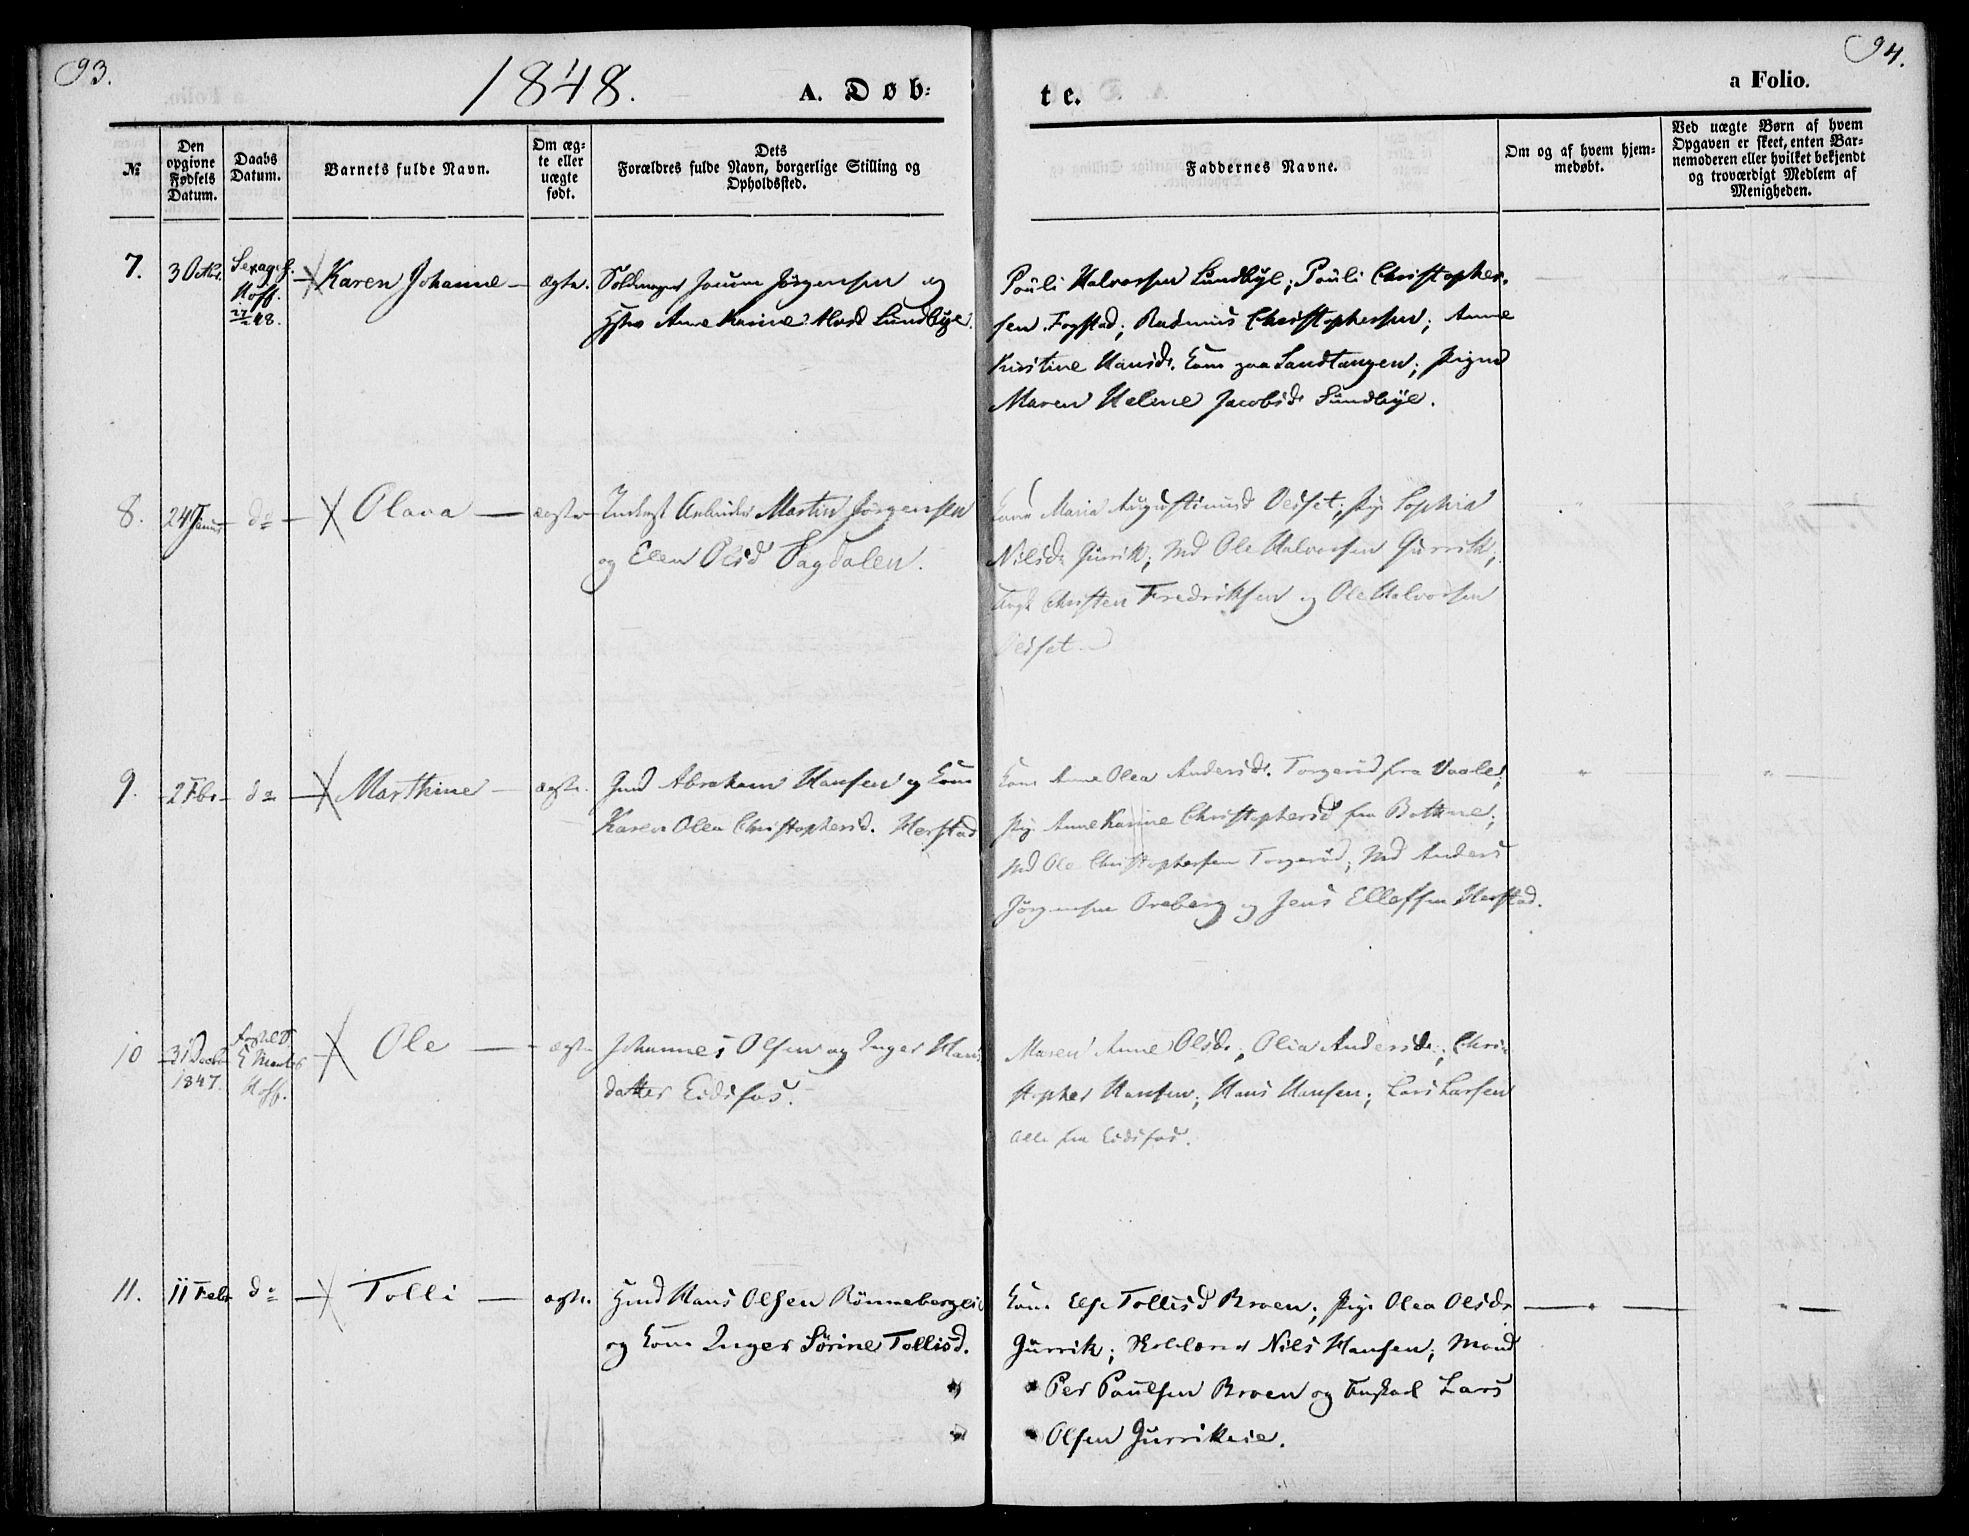 93.
1848.
A. Døb-
te.
94.
a Folio.
№
Den opgivne Fødsels Datum.
Daabs Datum.
Barnets fulde Navn.
Om æg-te eller uægte født.
Dets Forældres fulde Navn, borgerlige Stilling og Opholdssted.
Faddernes Navne.
Om og af hvem hjem-medøbt.
Ved uægte Børn af hvem Opgaven er skeet, enten Bar-nemoderen eller hvilket bekjendt og troværdigt Medlem af Menigheden.
7.
3 Octbr.
Sexages.
Hoff.
27/2 48.
Karen Johanne
ægte.
Jørgensen og
Anne Karine Lundbye.
Pouli Halvorsen Lundbye; Pouli Christopher-
sen Fogstad; Rasmus Christophersen; Anne
Kirstine Hansd. Kone paa Sandtangen; Pigen
Maren Helene Jacobsd. Sundbye.
8.
24 Januar
do
Olava
ægte
Inderst Arbeider Martin Jørgensen
og Elen Olsd Sagdalen.
Kone Maria Augustinusd Oelset; Pige Sophia
Nilsd. Gurrik; Md Ole Halvorsen Gurrik;
Ungk Christen Fredriksen og Ole Halvorsen
Oelset
9.
2 Fbr
do
Marthine
ægte.
Gmd Abraham Hansen og Kone
Karen Olea Christophersd. Herstad
Kone Anne Olea Andersd. Torgerød fra Vaale;
Pige Anne Karine Christophersd fra Bothne;
Md Ole Christophersen Torgerød; Md Anders
Jørgensen Oreberg og Jens Ellefsen Herstad.
10
31 Decbr
1847.
Hoff.
Ole
ægte
Johannes Olsen og Inger Hans
datter Eidsfos.
Maren Anne Olsd.; Olia Andersd.; Chri-
stopher Hansen; Hans Hansen; Lars Larsen
alle fra Eidsfos.
11.
11 Febr
do
Tolli
ægte.
Hmd Hans Olsen Rønnebergeie
og Kone Inger Sørine Tollisd.
Kone Else Tollisd Broen; Pige Olea Olsd.
Gurrik; Nils Hansen; Mand
Per Paulsen Broen og Ungkarl Lars
Olsen Gurrikeie.